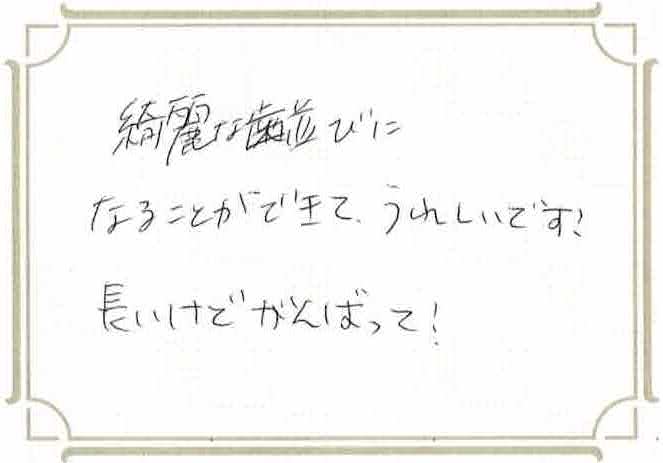 綺麗な歯並びに
なることができて、うれしいです!
長いけどがんばって!